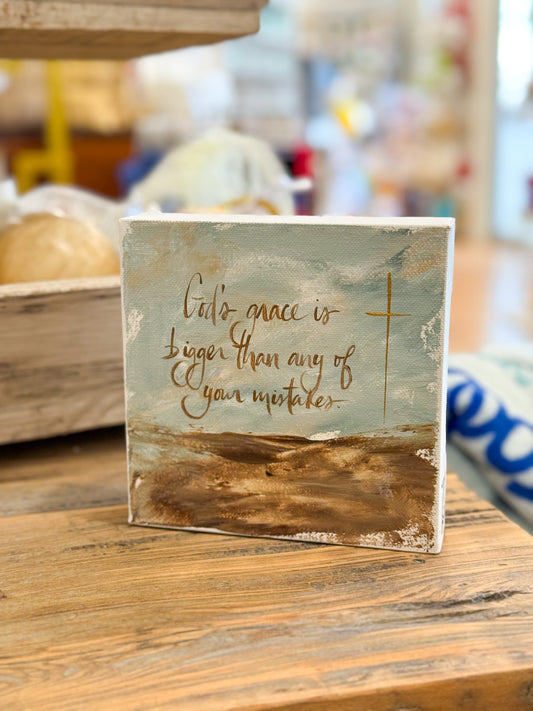 God's grace is
bigger than any of
your mistakes.